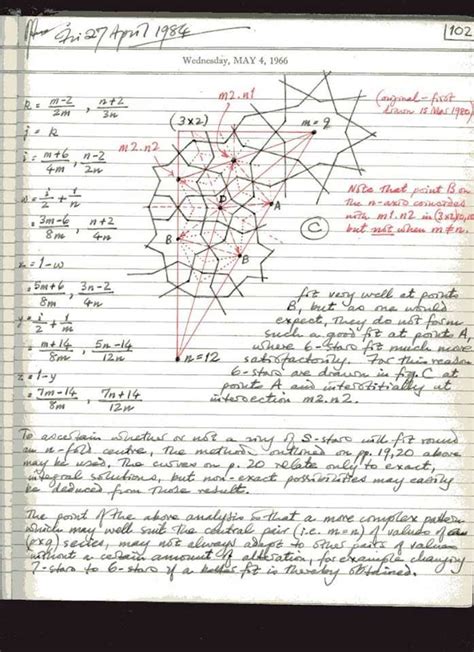 Fri 27 April 1984
102
Wednesday, MAY 4, 1966
k = m-2/2m, n+2/2n
j = k
m+6/4m, n-2/2n
i/2 + 1/n
3m-6/8m, n+2/4n
= 1-w
5m+6/8m, 3n-2/4n
i/2 + 1/m
m+14/8m, 5n-14/12n
z = 1-y
7m-14/8m, 7n+14/12n
m2.n1
(3x2)
m = 9
m2.n2
D
A
B
B
C
n = 12
(original - first
drawn 15 Mar 1980)
Note that point B on
the n-axis coincides
with m1.n2 in (3x2)
but not when m≠n.
fit very well at points
B, but as one would
expect, they do not form
such a good fit at points A,
where 6-stars fit much more
satisfactorily. For this reason
6-stars are drawn in fig. C at
points A and interstitially at
intersection m2.n2.
To ascertain whether or not a ring of S-stars will fit round
an n-fold centre, the methods outlined on pp. 19, 20 above
may be used. The curves on p. 20 relate only to exact,
integral solutions, but non-exact possibilities may easily
be deduced from those results.
The point of the above analysis is that a more complex pattern
which may well suit the central pair (i.e. m=n) of values of
series, may not always adapt to other pairs of values
without a certain amount of alteration, for example changing
7-stars to 6-stars if a better fit is thereby obtained.